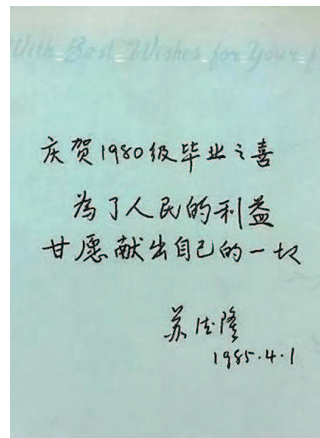 With Best Wishes for Your f
庆贺1980级毕业之喜
为了人民的利益
甘愿献出自己的一切
苏德隆
1985.4.1